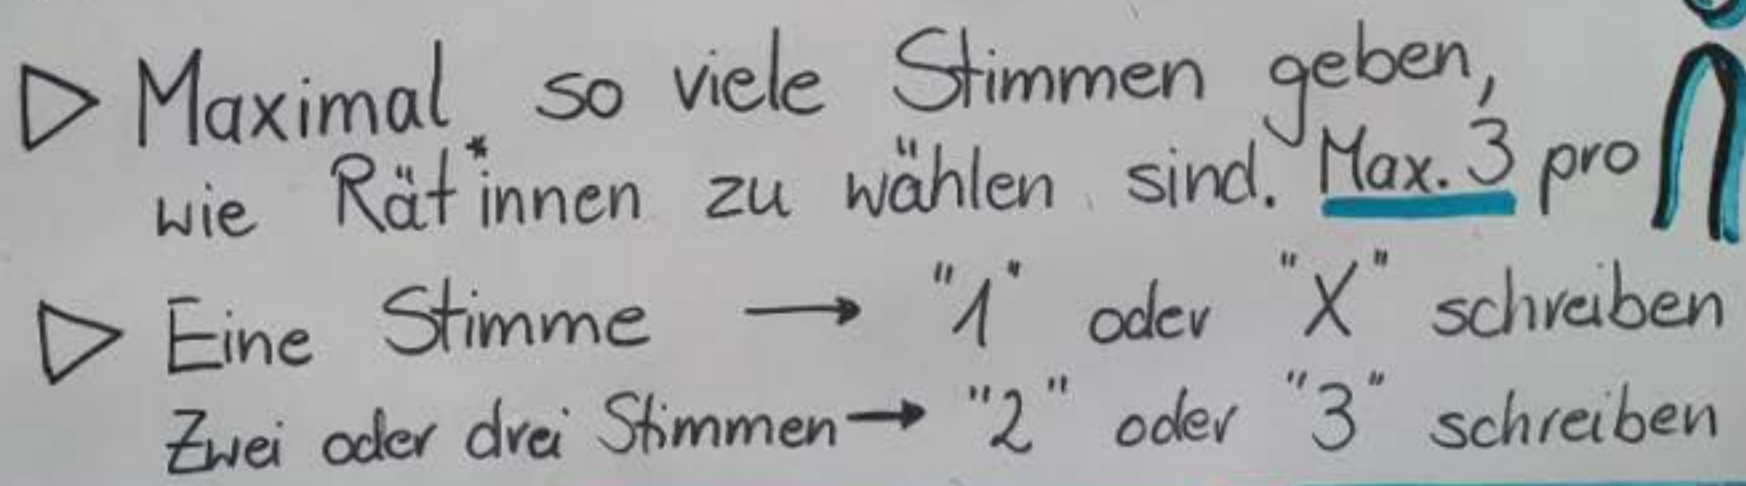 ▷ Maximal so viele Stimmen geben,
wie Rät*innen zu wählen sind. Max. 3 pro
▷ Eine Stimme → "1" oder "X" schreiben
Zwei oder drei Stimmen → "2" oder "3" schreiben